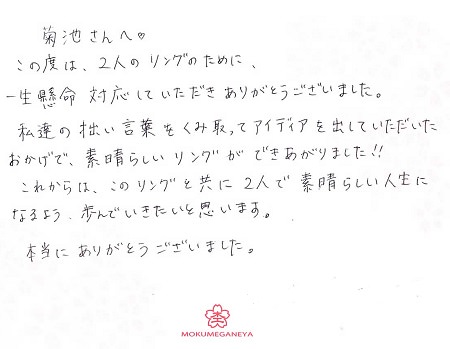 菊池さんへ♡
この度は、2人のリングのために、
一生懸命 対応していただきありがとうございました。
私達の拙い言葉をくみ取ってアイディアを出していただいた
おかげで、素晴らしいリングができあがりました!!
これからは、このリングと共に2人で素晴らしい人生に
なるよう、歩んでいきたいと思います。
本当にありがとうございました。
MOKUMEGANEYA